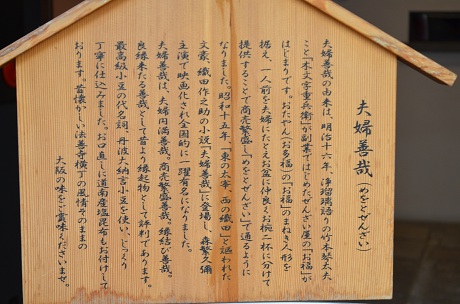 夫婦善哉（めをとぜんざい）
夫婦善哉の由来は、明治十六年、浄瑠璃語りの竹本琴太夫
こと「木文字重兵衛」が副業ではじめたぜんざい屋の「お福」が
はじまりです。おたやん（お多福）の「お福」のまねき人形を
据え、一人前を夫婦にたとえお盆に仲良くお椀二杯に分けて
提供することで商売繁盛し「めをとぜんざい」で通るように
なりました。昭和十五年、「東の太宰、西の織田」と謳われた
文豪、織田作之助の小説「夫婦善哉」に登場し、森繁久彌
主演で映画化され全国的に一躍有名になりました。
夫婦善哉は、夫婦円満善哉。商売繁盛善哉。縁結び善哉。
良縁来たる善哉として昔より縁起物として評判であります。
最高級小豆の代名詞、丹波大納言小豆を使い、じっくり
丁寧に仕込みました。お口直しに道南産塩昆布もお付けして
おります。昔懐かしい法善寺横丁の風情そのままの
大阪の味をご賞味くださいませ。